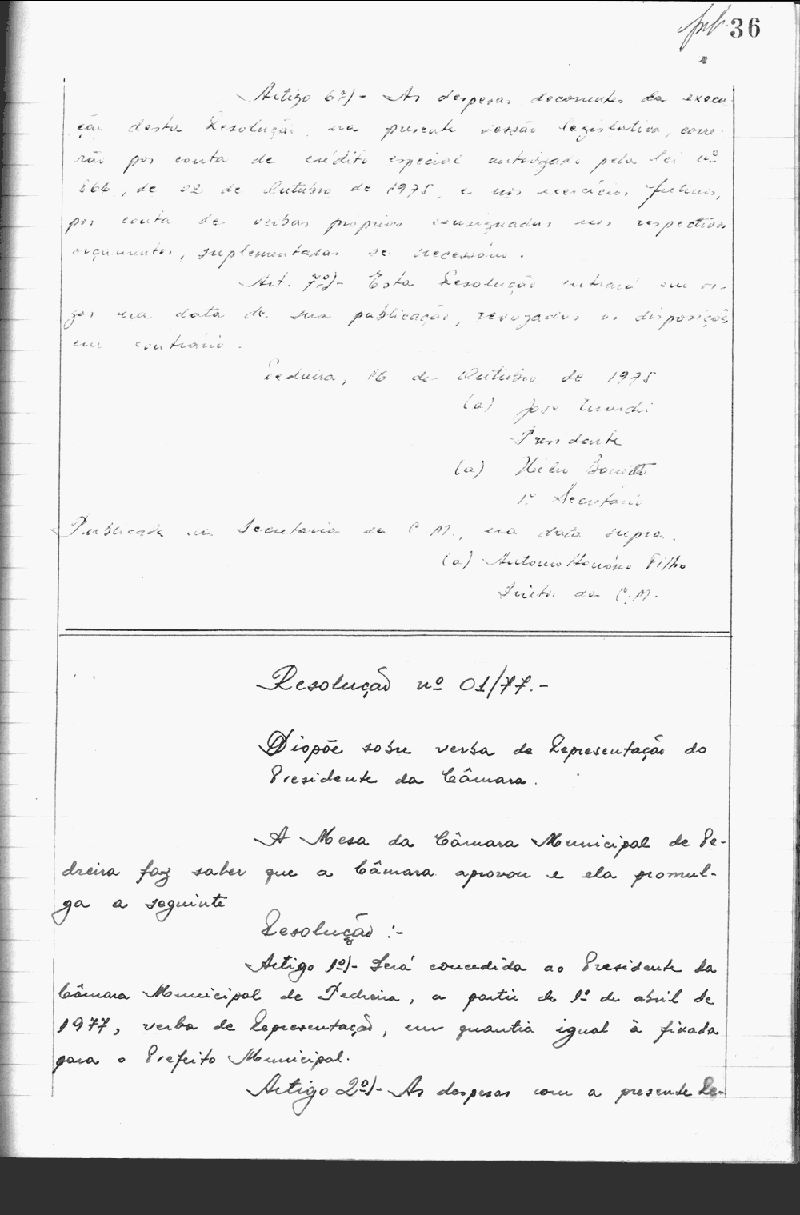 36
Artigo 6º)- As despesas decorrentes da execu-
ção desta Resolução, na presente sessão legislativa, corre-
rão por conta de crédito especial autorizado pela lei nº
866, de 02 de Outubro de 1975, e nos exercícios futuros,
por conta de verbas proprias consignadas nos respectivos
orçamentos, suplementadas se necessário.
Art. 7º)- Esta Resolução entrará em vi-
gor na data de sua publicação, revogadas as disposições
em contrário.
Pedreira, 16 de Outubro de 1975
(a) José
Presidente
(a)
1º Secretário
Publicada na Secretaria da C.M., na data supra.
(a) Antonio Honório Filho
Diretor da C.M.
Resolução nº 01/77.-
Dispõe sobre verba de Representação do
Presidente da Câmara.
A Mesa da Câmara Municipal de Pe-
dreira faz saber que a Câmara aprovou e ela promul-
ga a seguinte
Resolução :-
Artigo 1º)- Será concedida ao Presidente da
Câmara Municipal de Pedreira, a partir de 1º de abril de
1977, verba de Representação, em quantia igual à fixada
para o Prefeito Municipal.
Artigo 2º)- As despesas com a presente Re-